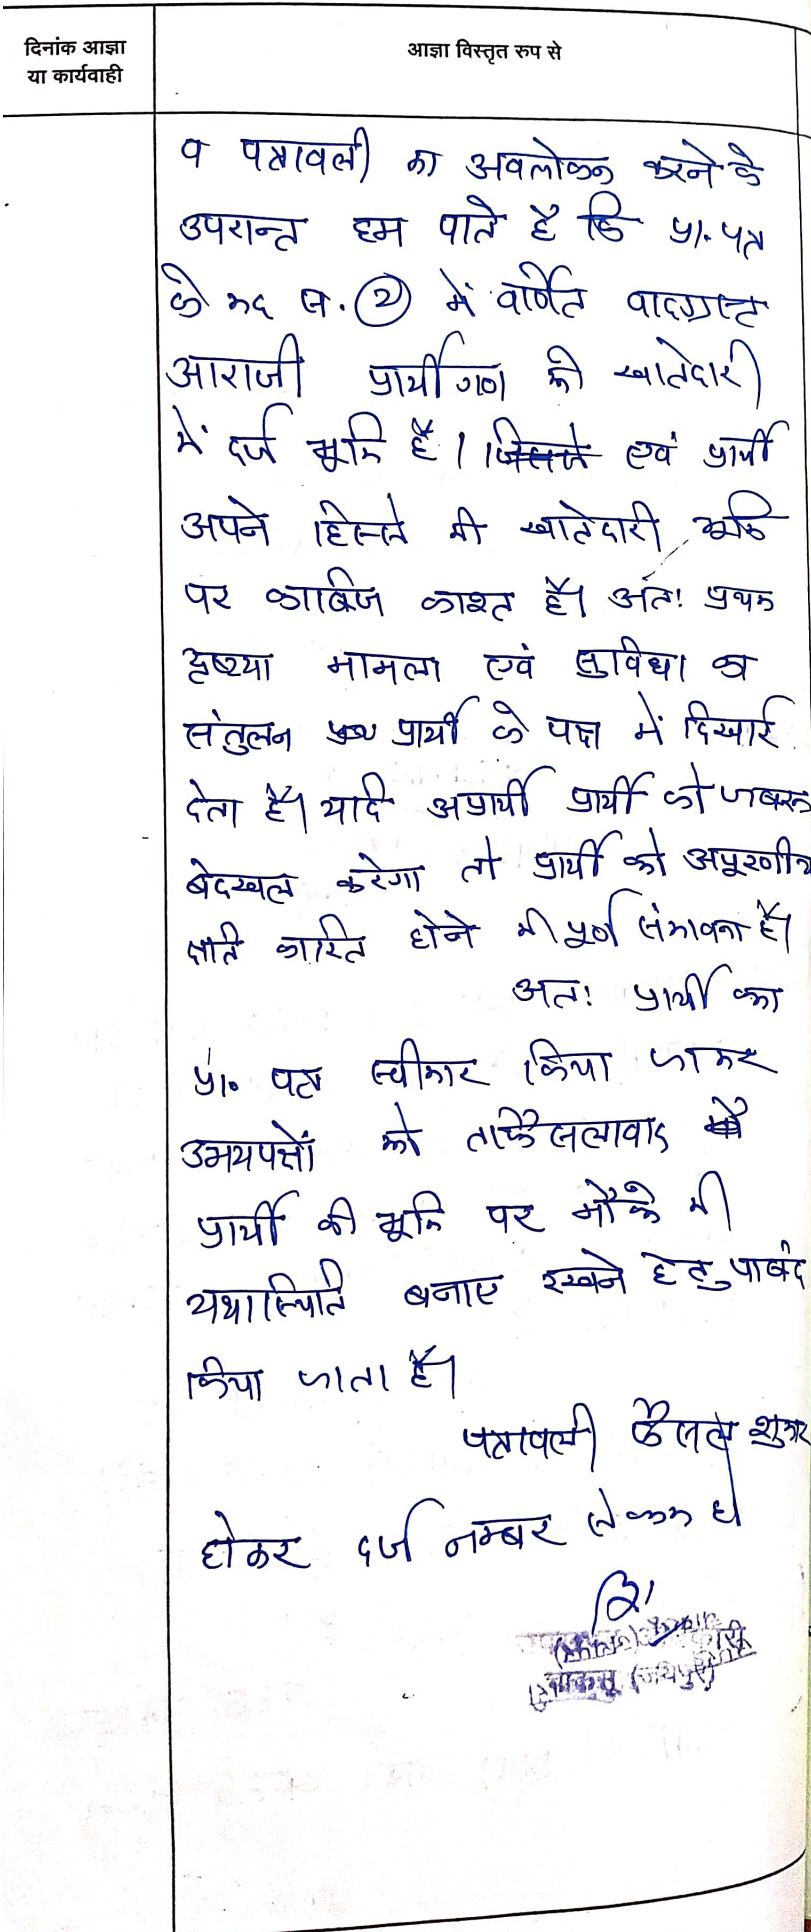 दिनांक आज्ञा
या कार्यवाही
आज्ञा विस्तृत रुप से
व पत्रावली का अवलोकन करने के
उपरान्त हम पाते है कि प्रा. पत्र
के मद सं. (2) में वर्णित वादग्रस्त
आराजी प्रार्थीगण की खातेदारी
में दर्ज भूमि है। जिसके एवं प्रार्थी
अपने हिस्से की खातेदारी भूमि
पर काबिज काश्त है। अतः प्रथम
दृष्टया मामला एवं सुविधा का
संतुलन प्रार्थी के पक्ष में दिखाई
देता है। यदि अप्रार्थी प्रार्थी को जबरन
बेदखल करेगा तो प्रार्थी को अपूरणीय
क्षति कारित होने की पूर्ण संभावना है।
अतः प्रार्थी का
प्रा० पत्र स्वीकार किया जाकर
उभयपक्षों को ताफैसलावाद
प्रार्थी की भूमि पर मौके की
यथास्थिति बनाए रखने हेतु पाबंद
किया जाता है।
पत्रावली फैसल शुमार
होकर दर्ज नम्बर से कम हो
चाकसू (जयपुर)